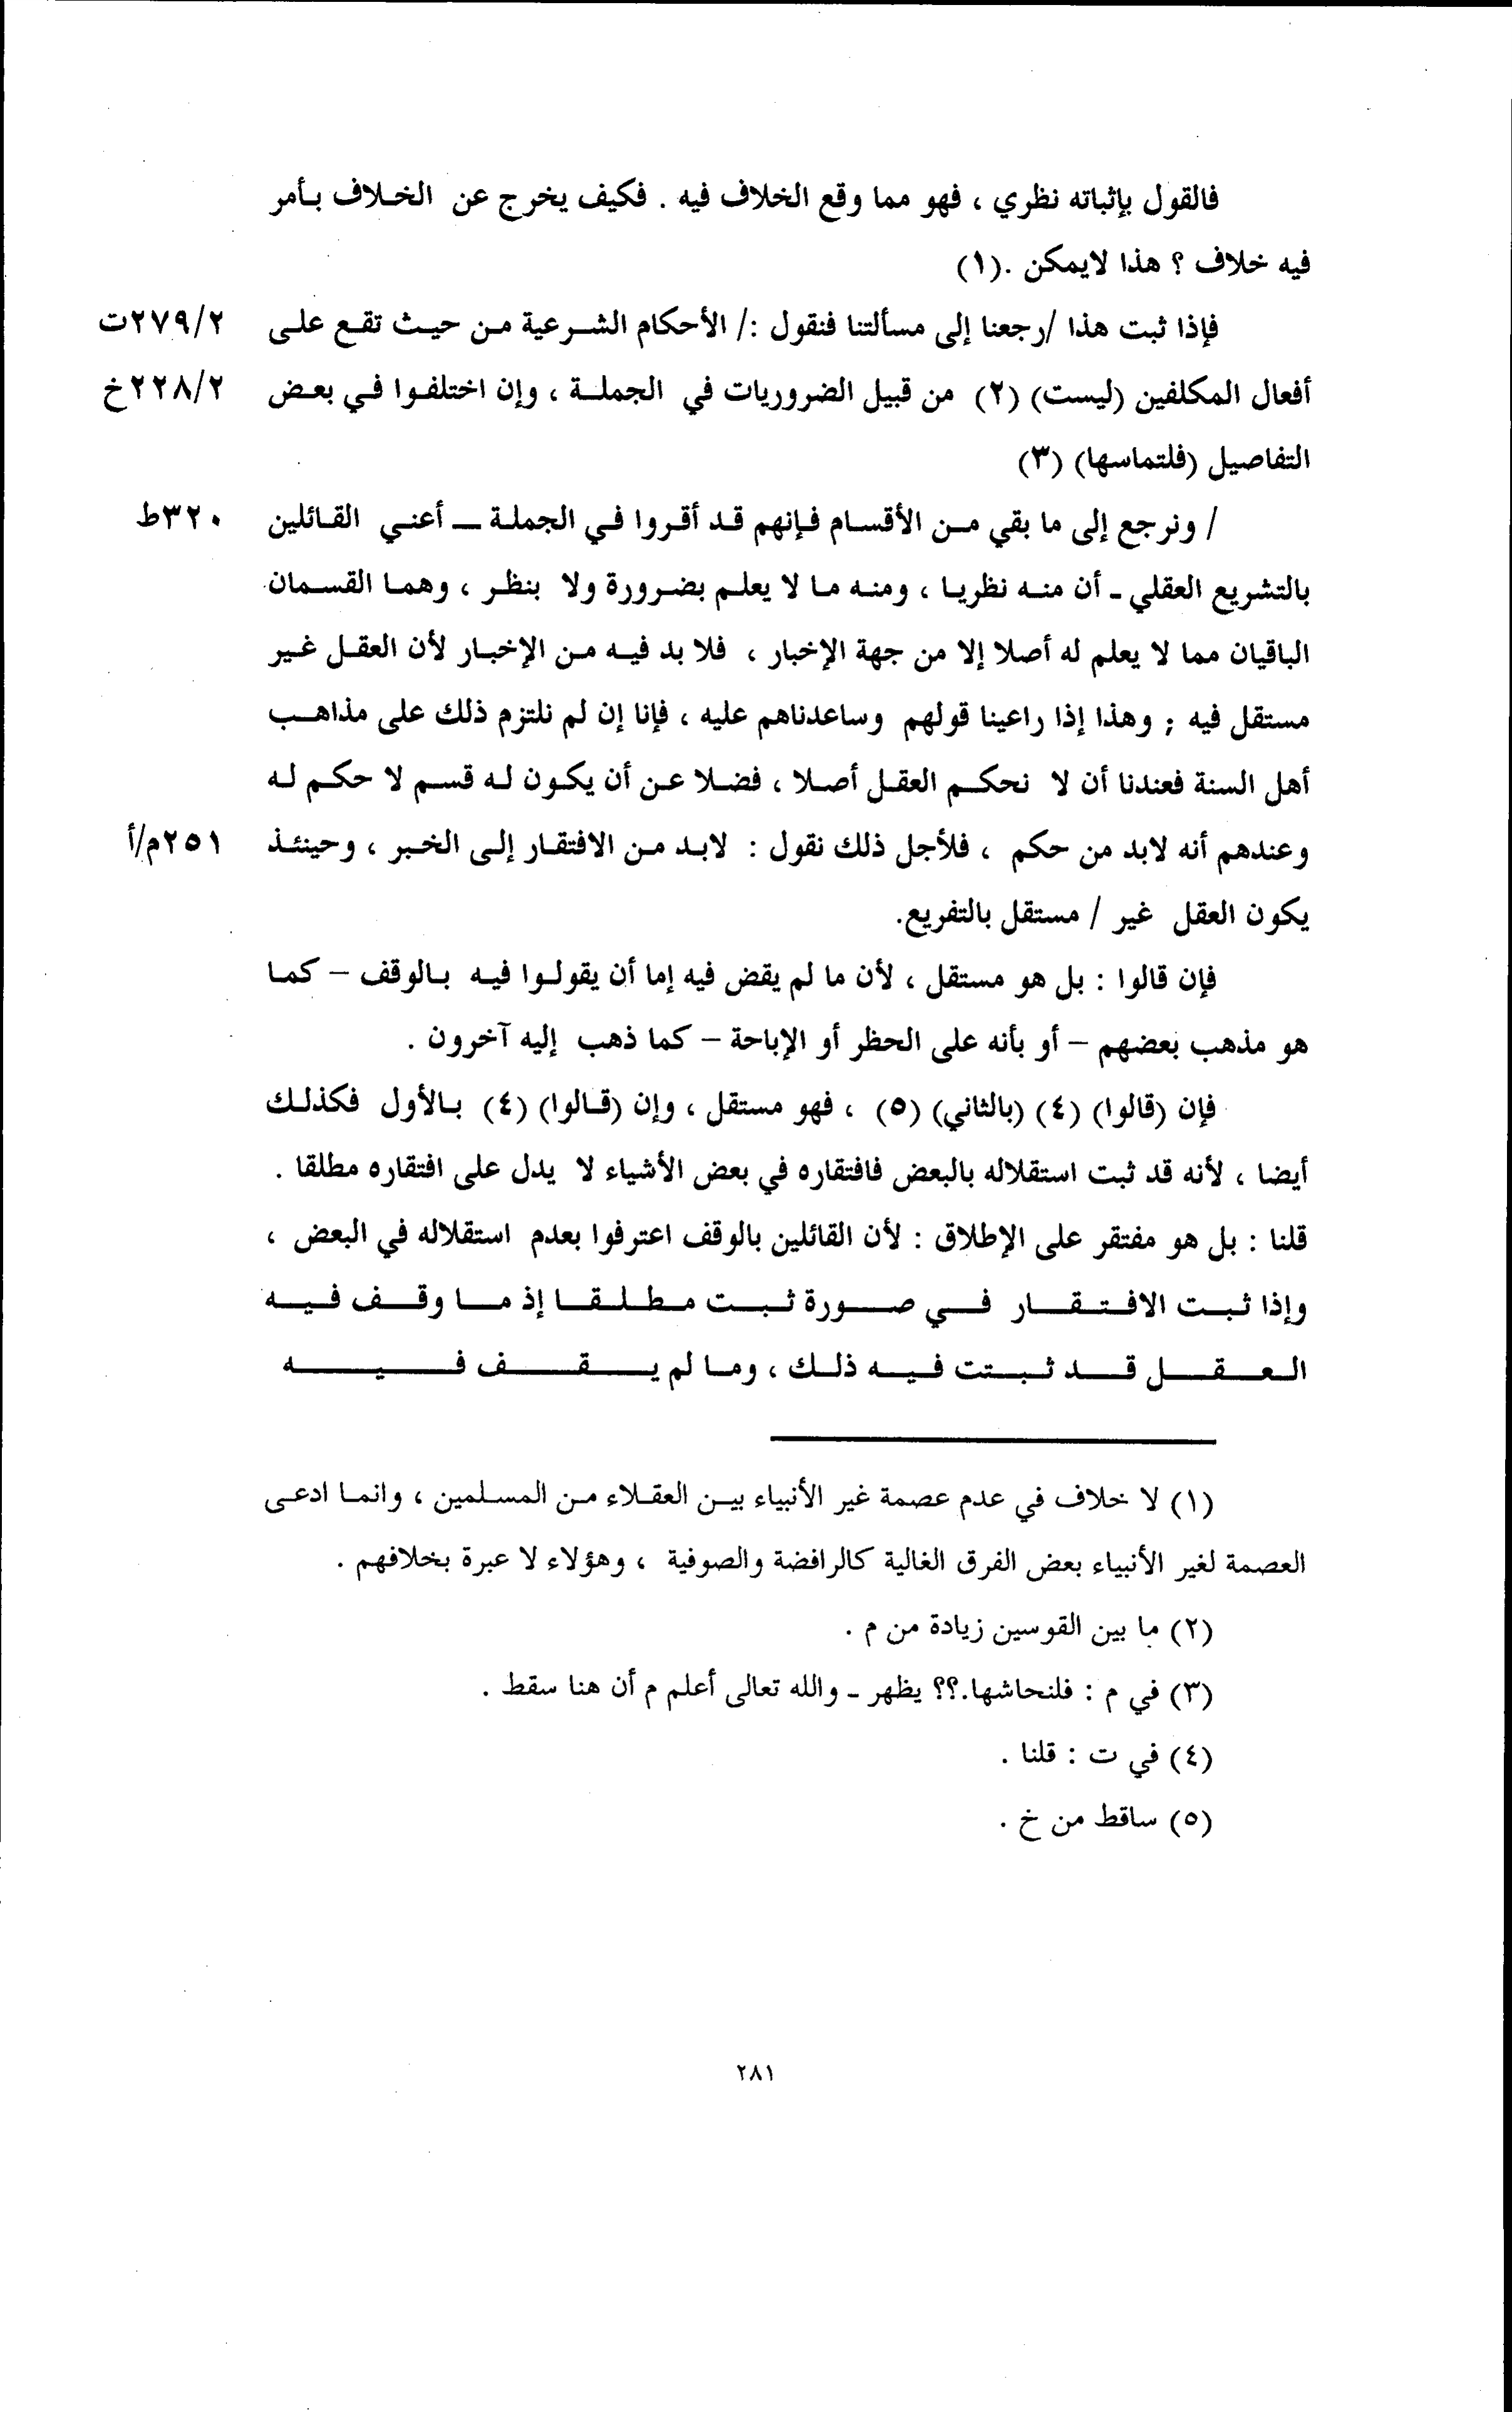 فالقول بإثباته نظري ، فهو مما وقع الخلاف فيه . فكيف يخرج عن الخلاف بأمر
فيه خلاف ؟ هذا لايمكن .(١)
فإذا ثبت هذا /رجعنا إلى مسألتنا فنقول :/ الأحكام الشرعية من حيث تقع على ٢٧٩/٢ت
أفعال المكلفين (ليست) (٢) من قبيل الضروريات في الجملة ، وإن اختلفوا في بعض ٢٢٨/٢خ
التفاصيل (فلتماسها) (٣)
/ ونرجع إلى ما بقي من الأقسام فإنهم قد أقروا في الجملة ـ أعني القائلين ٣٢٠ط
بالتشريع العقلي ـ أن منه نظريا ، ومنه ما لا يعلم بضرورة ولا بنظر ، وهما القسمان
الباقيان مما لا يعلم له أصلا إلا من جهة الإخبار ، فلا بد فيه من الإخبار لأن العقل غير
مستقل فيه ; وهذا إذا راعينا قولهم وساعدناهم عليه ، فإنا إن لم نلتزم ذلك على مذاهب
أهل السنة فعندنا أن لا نحكم العقل أصلا ، فضلا عن أن يكون له قسم لا حكم له
وعندهم أنه لابد من حكم ، فلأجل ذلك نقول : لابد من الافتقار إلى الخبر ، وحينئذ ٢٥١م/أ
يكون العقل غير / مستقل بالتفريع.
فإن قالوا : بل هو مستقل ، لأن ما لم يقض فيه إما أن يقولوا فيه بالوقف – كما
هو مذهب بعضهم – أو بأنه على الحظر أو الإباحة – كما ذهب إليه آخرون .
فإن (قالوا) (٤) (بالثاني) (٥) ، فهو مستقل ، وإن (قالوا) (٤) بالأول فكذلك
أيضا ، لأنه قد ثبت استقلاله بالبعض فافتقاره في بعض الأشياء لا يدل على افتقاره مطلقا .
قلنا : بل هو مفتقر على الإطلاق : لأن القائلين بالوقف اعترفوا بعدم استقلاله في البعض ،
وإذا ثبت الافتقار في صورة ثبت مطلقا إذ ما وقف فيه
العقل قد ثبتت فيه ذلك ، وما لم يقف فيه
(١) لا خلاف في عدم عصمة غير الأنبياء بين العقلاء من المسلمين ، وانما ادعى
العصمة لغير الأنبياء بعض الفرق الغالية كالرافضة والصوفية ، وهؤلاء لا عبرة بخلافهم .
(٢) ما بين القوسين زيادة من م .
(٣) في م : فلنحاشها.؟؟ يظهر ـ والله تعالى أعلم م أن هنا سقط .
(٤) في ت : قلنا .
(٥) ساقط من خ .
٢٨١